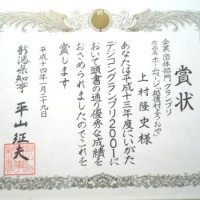 賞状
企業・団体部門グランプリ
上村隆史様
あなたは平成十三年度にいがた
デジコングランプリ2001に
おいて頭書の通り優秀な成績を
おさめられましたのでこれを
賞します
平成十四年一月二十九日
新潟県知事
平山征夫